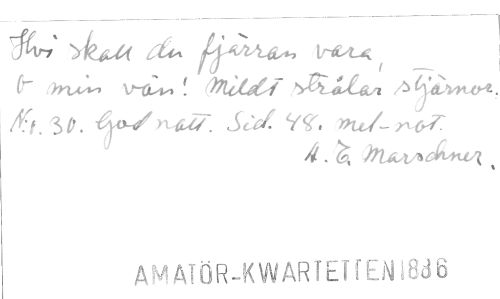 Hvi skall du fjärran vara,
O min vän! Mildt strålar stjärnor.
N:r. 30. God natt. Sid. 48. mel-not.
A. E. Marschner.
AMATÖR-KWARTETTEN 1886